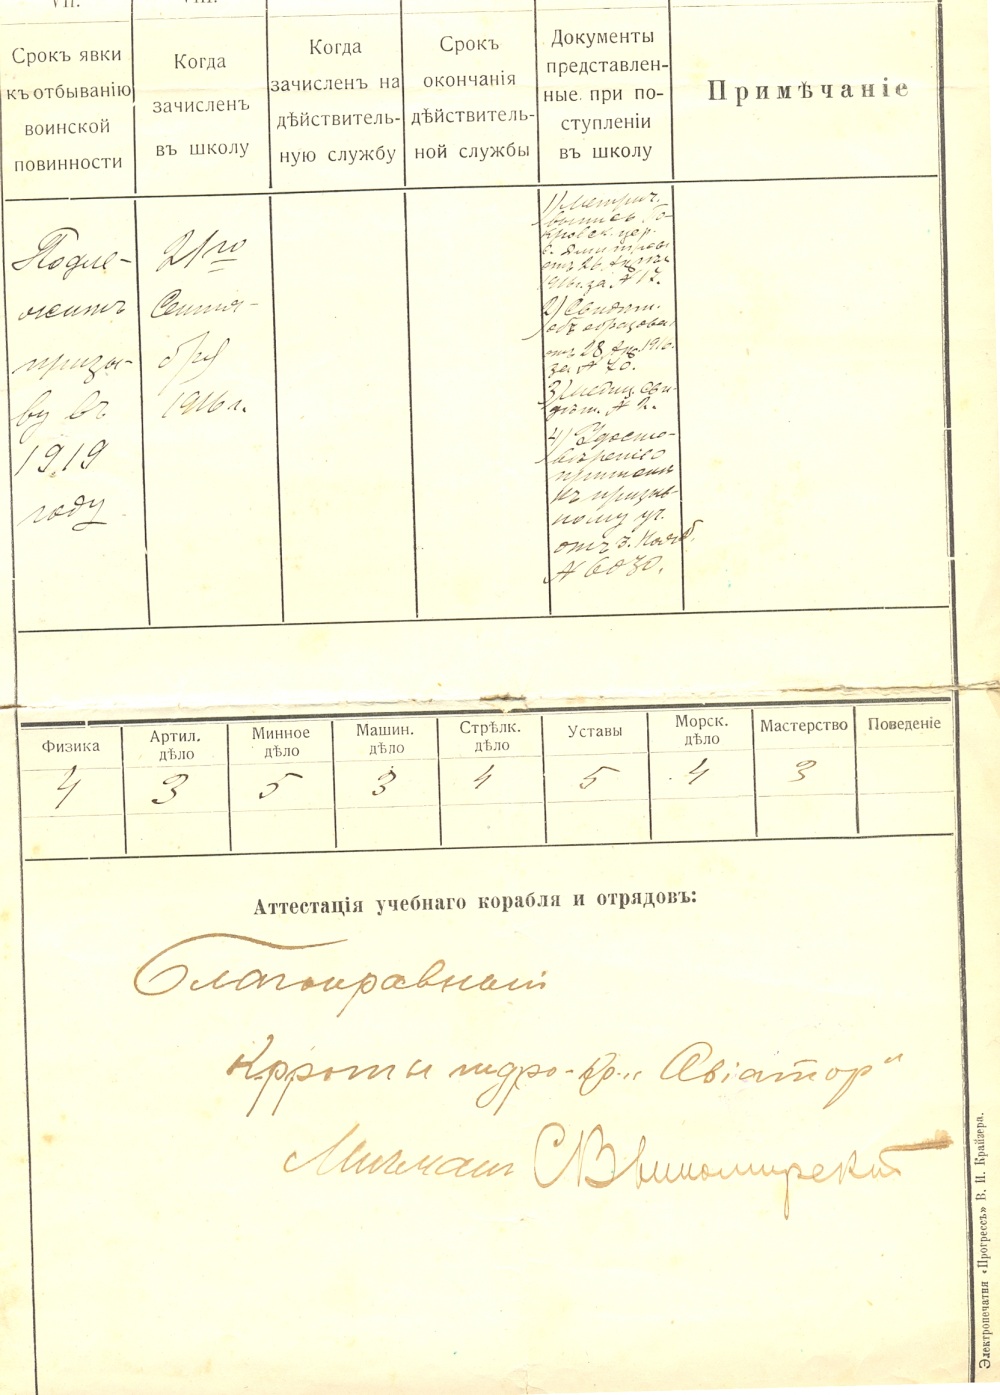 VII.
VIII.
Срокъ явки
къ отбыванію
воинской
повинности
Когда
зачисленъ
въ школу
Когда
зачисленъ на
дѣйствитель-
ную службу
Срокъ
окончанія
дѣйствитель-
ной службы
Документы
представлен-
ные при по-
ступленіи
въ школу
Примѣчаніе
Подле-
житъ
призы-
ву въ
1919
году
21го
Сентя-
бря
1916 г.
1) Метрич.
выпись По-
кровск. цер.
отъ 26
1916 за № 17.
2) Свидѣт.
объ образован.
отъ 28 Апр. 1916.
за № 20.
3) Медиц. сви-
дѣт. № 2.
4) Удосто-
вѣреніе о
приписк.
къ призыв-
ному уч.
отъ 3.
№ 6030.
Физика
Артил.
дѣло
Минное
дѣло
Машин.
дѣло
Стрѣлк.
дѣло
Уставы
Морск.
дѣло
Мастерство
Поведеніе
4 3 5 3 4 5 4 3
Аттестація учебнаго корабля и отрядовъ:
Благонравный
гидро-кр. „Авіаторъ"
Мичманъ
Электропечатня «Прогрессъ» В. И. Крайзера.